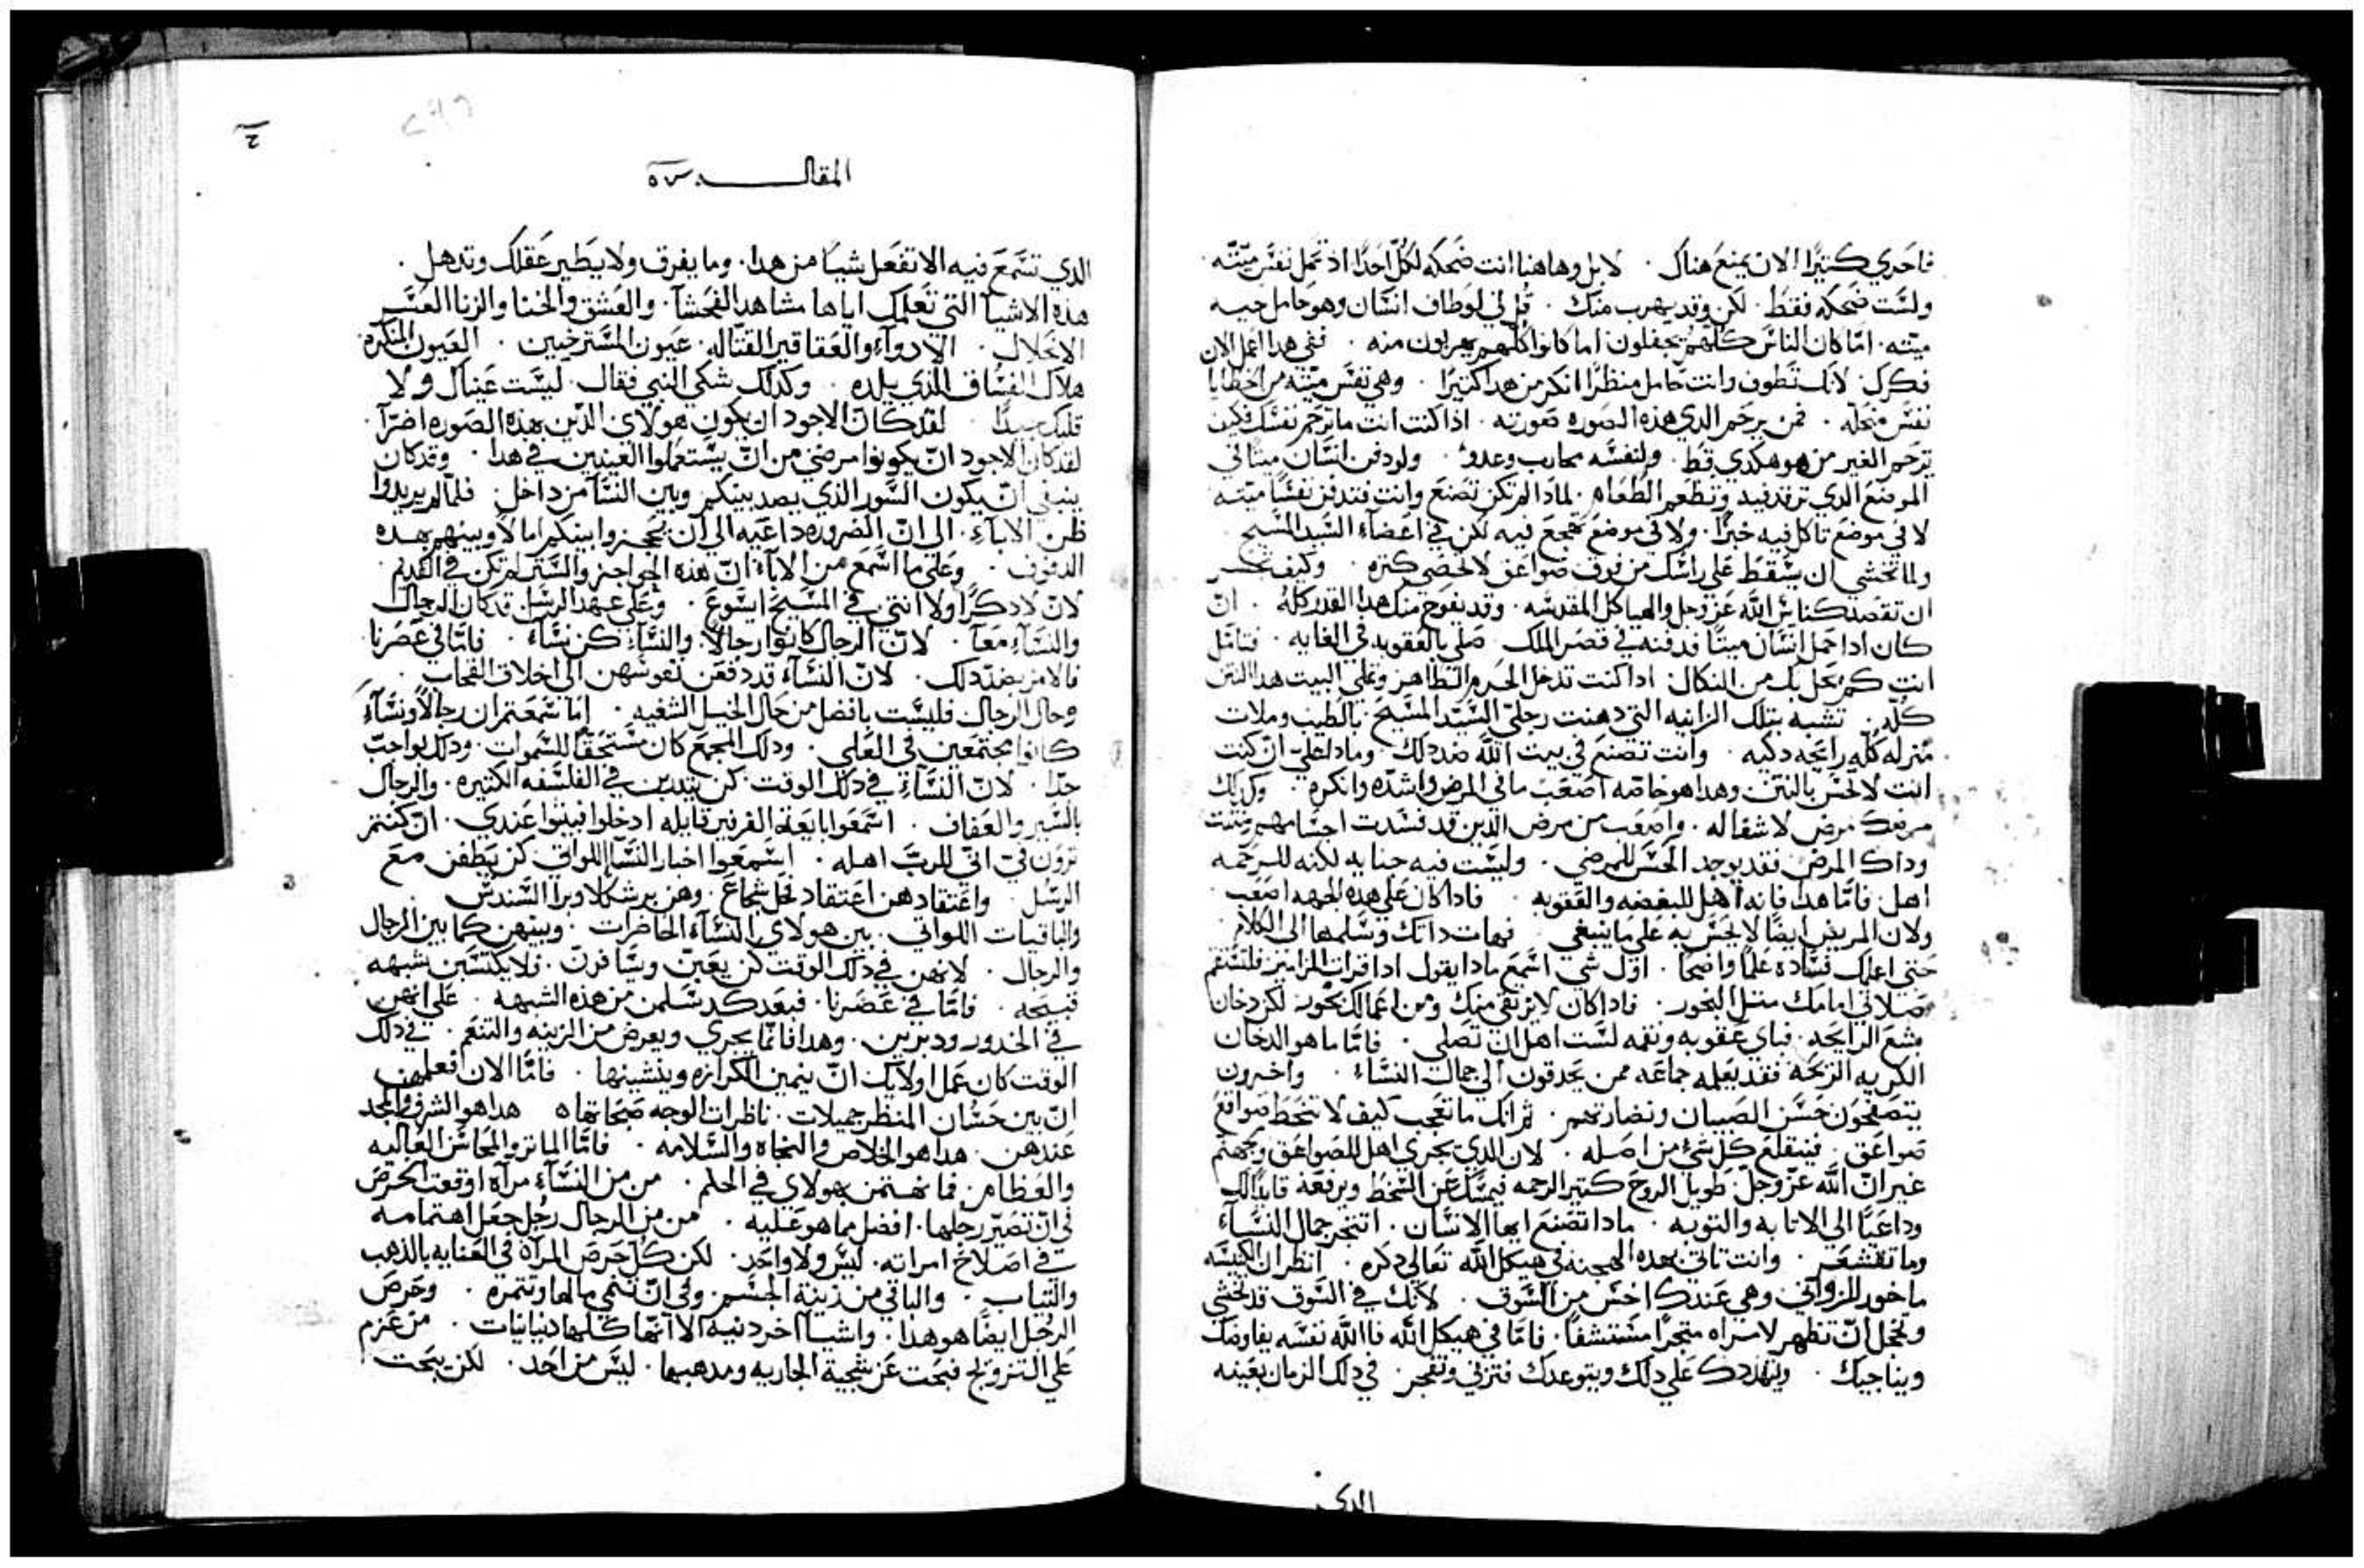 فاحري كتيرًا الان يمنع هناك. لا بل وهاهنا انت ضحكه لكل احدًا اد تحمل نفس ميّته.
ولست ضحكه فقط. لكن وقد يهرب منك. قل لي لو طاف انسان وهو حامل جيه
ميته. امّا كان الناس كلهم يجفلون اما كانوا كلهم يهربون منه. ففي هدا اعمل الان
فكرك. لانك تطوف وانت حامل منظرًا انكر من هدا كتيرًا. وهي نفس ميّته من الخطايا
نفس منحله. فمن يرحم الدي هده الصوره صورته. ادا كنت انت ما ترحم نفسك فكيف
ترحم الغير من هو هكدي قط. ولنفسه محارب وعدو. ولو دفن انسان ميتًا في
الموضع الدي ترقد فيه وتطعم الطعام. لمادا لم تكن تصنع وانت فتدفن نفسًا ميته
لا في موضع تاكل فيه خبزًا. ولا في موضع تهجع فيه لكن في اعضاء السيد المسيح.
ولما تخشي ان يسقط علي راسك من فوق صواعق لا تحصي كتره. وكيف تجسر
ان تقصد كنايس الله عز وجل والهياكل المقدسه. وقد يفوح منك هدا القدر كله. ان
كان ادا حمل انسان ميتًا فدفنه في قصر الملك صلي بالعقوبه في الغايه. فتامل
انت كم يحل بك من النكال ادا كنت تدخل الحرم الطاهر وتملي البيت هدا النتن
كله. تشبه بتلك الزانيه التي دهنت رجليّ السيد المسيح بالطيب وملات
منزله كله رايحه دكيه. وانت تصنع في بيت الله ضد دلك. ومادا عليّ ان كنت
انت لا تحس بالنتن وهدا هو خاصه اصعب ما في المرض واشده وانكره. وكدلك
مرضك مرض لا شفا له. واصعب من مرض الدين قد فسدت اجسامهم ونتنت
وداك المرض فقد يوجد الحس للمرضي. وليست فيه جنايه لكنه للرحمه
اهل. فامّا هدا فانه اهل للبغضه والعقوبه. فادا كان علي هده الجهه اصعب
ولان المريض ايضًا لا يحس به علي ما ينبغي. فهات داتك وسلمها الي الكلام
حتي اعلمك فساده علمًا واضحًا. اول شي اسمع مادا يقول ادا قرات المزامير فلتستقم
صلاتي امامك متل البخور. فادا كان لا يرتقي منك ومن اعمالك بخور لكن دخان
بشع الرايحه. فباي عقوبه ونقمه لست اهل ان تصلي. فامّا ما هو الدخان
الكريه الريحه فقد يعلمه جماعه ممن يحدقون الي جمال النساء. واخرون
يتصفحون حسن الصبيان ونضارتهم. تم انك ما تعجب كيف لا تنحط صواقع
صواعق. فينقلع كل شيء من اصله. لان الدي يجري اهل للصواعق وجهنم
غير ان الله عزّ وجلّ طويل الروح كتير الرحمه فيمسك عن السخط ويرفعه قايدًا لك
وداعيًا الي الانابه والتوبه. مادا تصنع ايها الانسان. اتنجر جمال النساء
وما تقشعر. وانت تاتي بهده الهجنه في هيكل الله تعالي دكره. انظر ان الكنيسه
ماخور للزواني وهي عندك اخس من السوق. لانك في السوق قد تخشي
وتخجل ان تظهر لامراه متجرًا مستشفًا. فامّا في هيكل الله فالله نفسه يفاوضك
ويناجيك. ويتهددك علي دلك ويتوعدك فتزني وتفجر. في دلك الزمان بعينه
الدي
المقاله ٧٥
الدي تسمع فيه الا تفعل شيًا من هدا. وما يفرق ولا يطير عقلك وتدهل.
هده الاشيا التي تعلمك اياها مشاهد الفحشا. والعشق والخنا والزنا العسر
الانحلال. الادوآء والعقاقير القتاله. عيون المسترخيين. العيون المنكره
هلاك الفساق اللديد. وكدلك شكي النبي فقال. ليست عيناك ولا
قلبك جيدًا. لقد كان الاجود ان يكون هولاي الدين هده الصوره اضرآ.
لقد كان الاجود ان يكونوا مرضي من ان يستعملوا العينين في هدا. وقد كان
ينبغي ان يكون السور الذي يصد بينكم وبين النسآ من داخل. فلمّا لم يريدوا
ظن الابآء. الي ان الضروره داعيه الي ان يحجزوا بينكم اما لا وبينهم بهده
الدفوف. وعلي ما اسمع من الابآء ان هده الحواجز والستر لم تكن في القديم.
لان لا دكرًا ولا انتي في المسيح ايسوع. وعلي عهد الرسل قد كان الرجال
والنسآء معًا. لان الرجال كانوا رجالًا. والنسآء كن نسآء. فامّا في عصرنا
فالامر بضد دلك. لان النسآء قد دفعن نفوسهن الي اخلاق القحاب.
وحال الرجال فليست بافضل من حال الخيل الشغبه. اما سمعتم ان رجالًا ونسآء
كانوا مجتمعين في العلي. ودلك المجمع كان مستحقًا للسموات. ودلك بواجب
جدًا. لان النسآء في دلك الوقت كن يتدبن في الفلسفه الكتيره. والرجال
بالستر والعفاف. اسمعوا بايعة الفرفير قايله ادخلوا فبيتوا عندي. ان كنتم
ترون فيّ اني للرب اهله. اسمعوا اخبار النسآء اللواتي كن يطفن مع
الرسل. واعتقادهن اعتقاد فحل شجاع. وهن برشكلا وبرا السندس
والباقيات اللواتي. بين هولاي النسآء الحاضرات. وبينهن كما بين الرجال
والرجال. لانهن في دلك الوقت كن يغبن ويسافرن. فلا يكتسبن شبهه
قبيحه. فامّا في عصرنا. فبعد كد سلمن من هده الشبهه. علي انهن
في الخدور ودبرين. وهدا فانما يجري ويعرض من الزينه والتنعم. في دلك
الوقت كان عمل اولايك ان ينمين الكرازه وينشينها. فامّا الان فعملهن
ان يبين حسان المنظر جميلات. ناظرات الوجه صحاحها ه هدا هو الشرف والمجد
عندهن. هدا هو الخلاص والنجاه والسلامه. فامّا الماتر والمحاسن العاليه
والعظام. فما نهتمن بهولاي في الحلم. من من النسآء مرآة اوقعت الحرص
في ان تصير رجلها. افضل مما هو عليه. من من الرجال رجل جعل اهتمامه
في اصلاح امراته. ليس ولا واحد. لكن كل حرص المرآة في العنايه بالدهب
والتياب. والباقي من زينة الجسم. وفي ان تنمي مالها وتتمره. وحرص
الرجل ايضًا هو هدا. واشيآ اخر دنيه الا انها كلها دنيانيات. من عزم
علي التزويج فبحت عن سجية الجاريه ومدهبها. ليس من احد. لكن يبحت